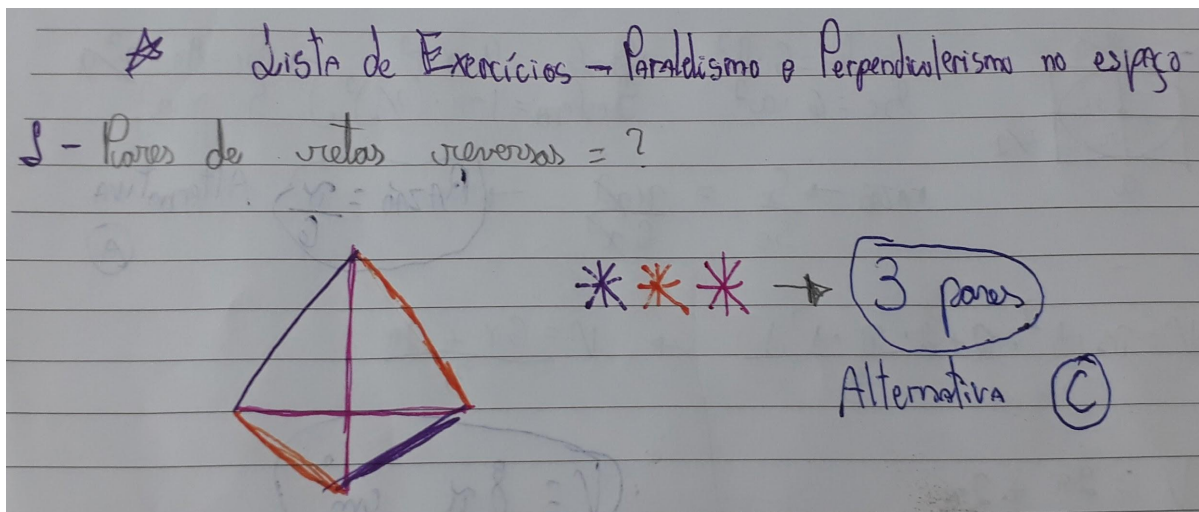 Lista de Exercícios - Paralelismo e Perpendicularismo no espaço
1 - Pares de retas reversas = ?
→ 3 pares
Alternativa C